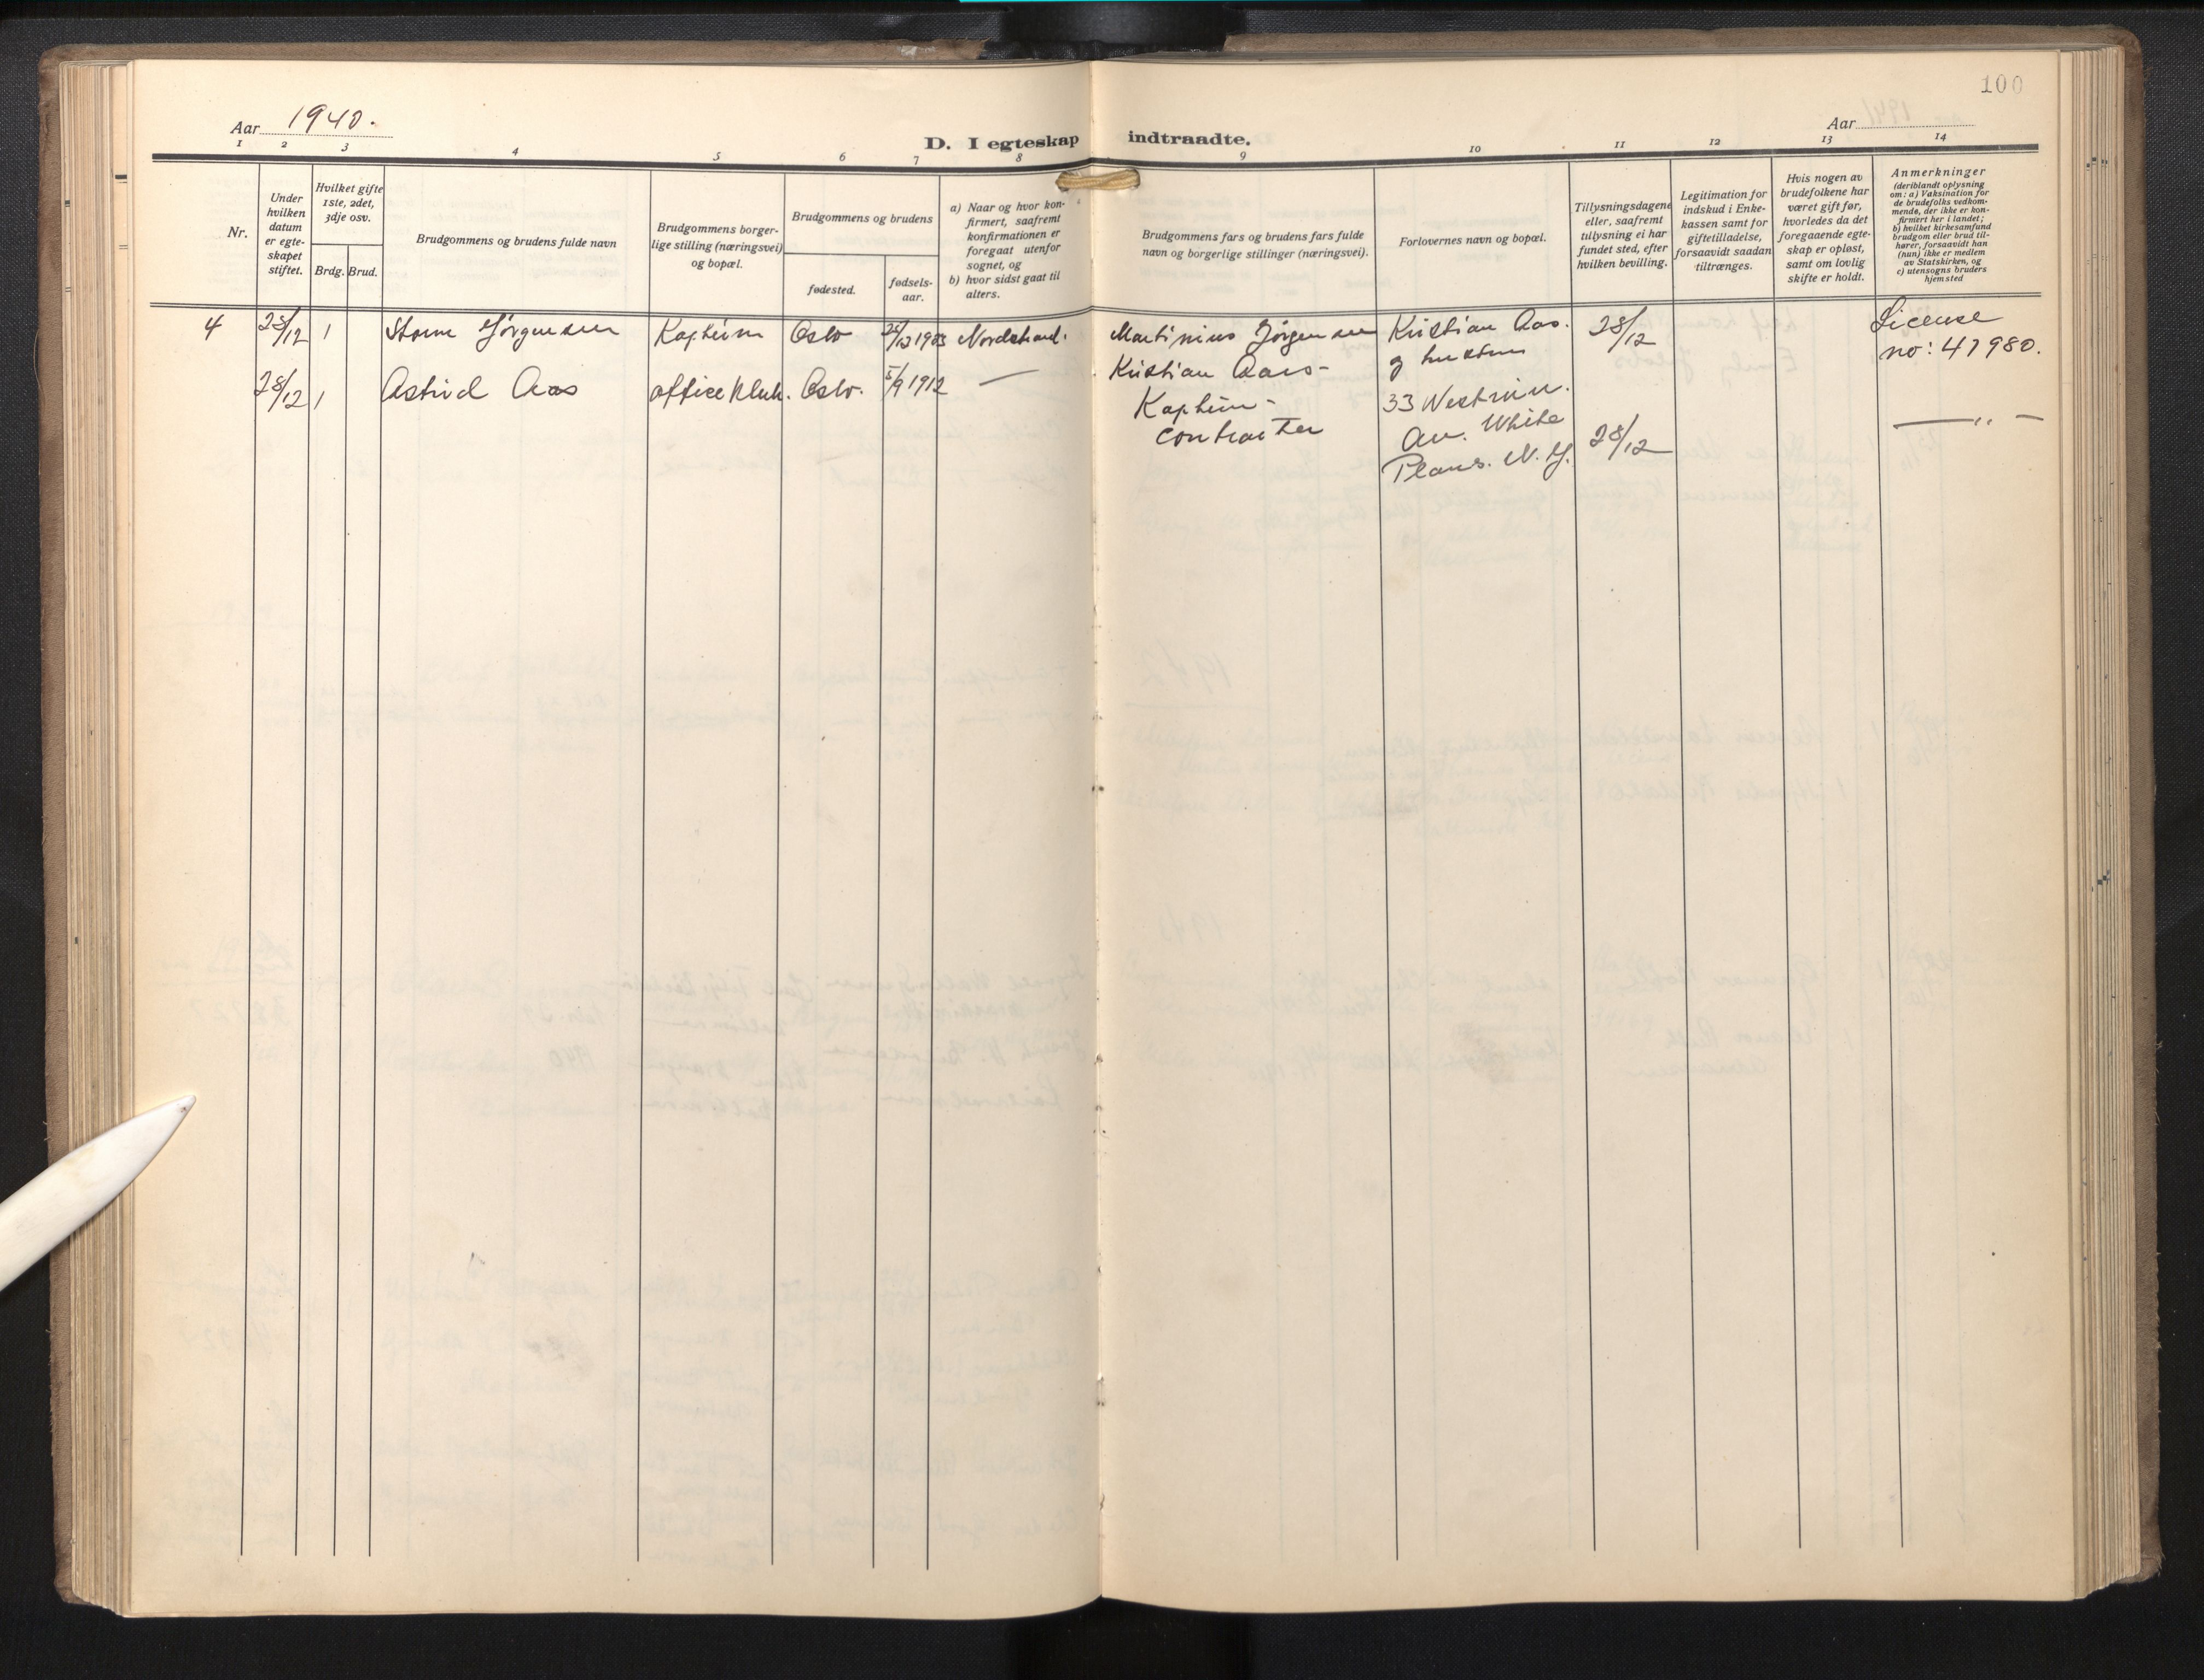 100
Aar 1940.
Aar
D. I egteskap indtraadte.
1 2 3 4 5 6 7 8 9 10 11 12 13 14
Nr.
Under
hvilken
datum
er egte-
skapet
stiftet.
Hvilket gifte
1ste, 2det,
3dje osv.
Brdg. Brud.
Brudgommens og brudens fulde navn
Brudgommens borger-
lige stilling (næringsvei)
og bopæl.
Brudgommens og brudens
fødested.
fødsels-
aar.
a) Naar og hvor kon-
firmert, saafremt
konfirmationen er
foregaat utenfor
sognet, og
b) hvor sidst gaat til
alters.
Brudgommens fars og brudens fars fulde
navn og borgerlige stillinger (næringsvei).
Forlovernes navn og bopæl.
Tillysningsdagene
eller, saafremt
tillysning ei har
fundet sted, efter
hvilken bevilling.
Legitimation for
indskud i Enke-
kassen samt for
giftetilladelse,
forsaavidt saadan
tiltrænges.
Hvis nogen av
brudefolkene har
været gift før,
hvorledes da det
foregaaende egte-
skap er opløst,
samt om lovlig
skifte er holdt.
Anmerkninger
(deriblandt oplysning
om: a) Vaksination for
de brudefolks vedkom-
mende, der ikke er kon-
firmert her i landet;
b) hvilket kirkesamfund
brudgom eller brud til-
hører, forsaavidt han
(hun) ikke er medlem
av Statskirken, og
c) utensogns bruders
hjemsted
4 28/12 1 Storm Jørgensen Kaptein Oslo 1903 Nordstrand.
Martinius Jørgensen
Kristian Aas.
og hustru
28/12
License
no: 41980.
28/12 1 Astrid Aas office klerk. Oslo. 5/9 1912 —
Kristian Aas-
Kaptein-
contractor
33 Westmin.
Av. White
Plains. N. Y.
28/12
— „ —